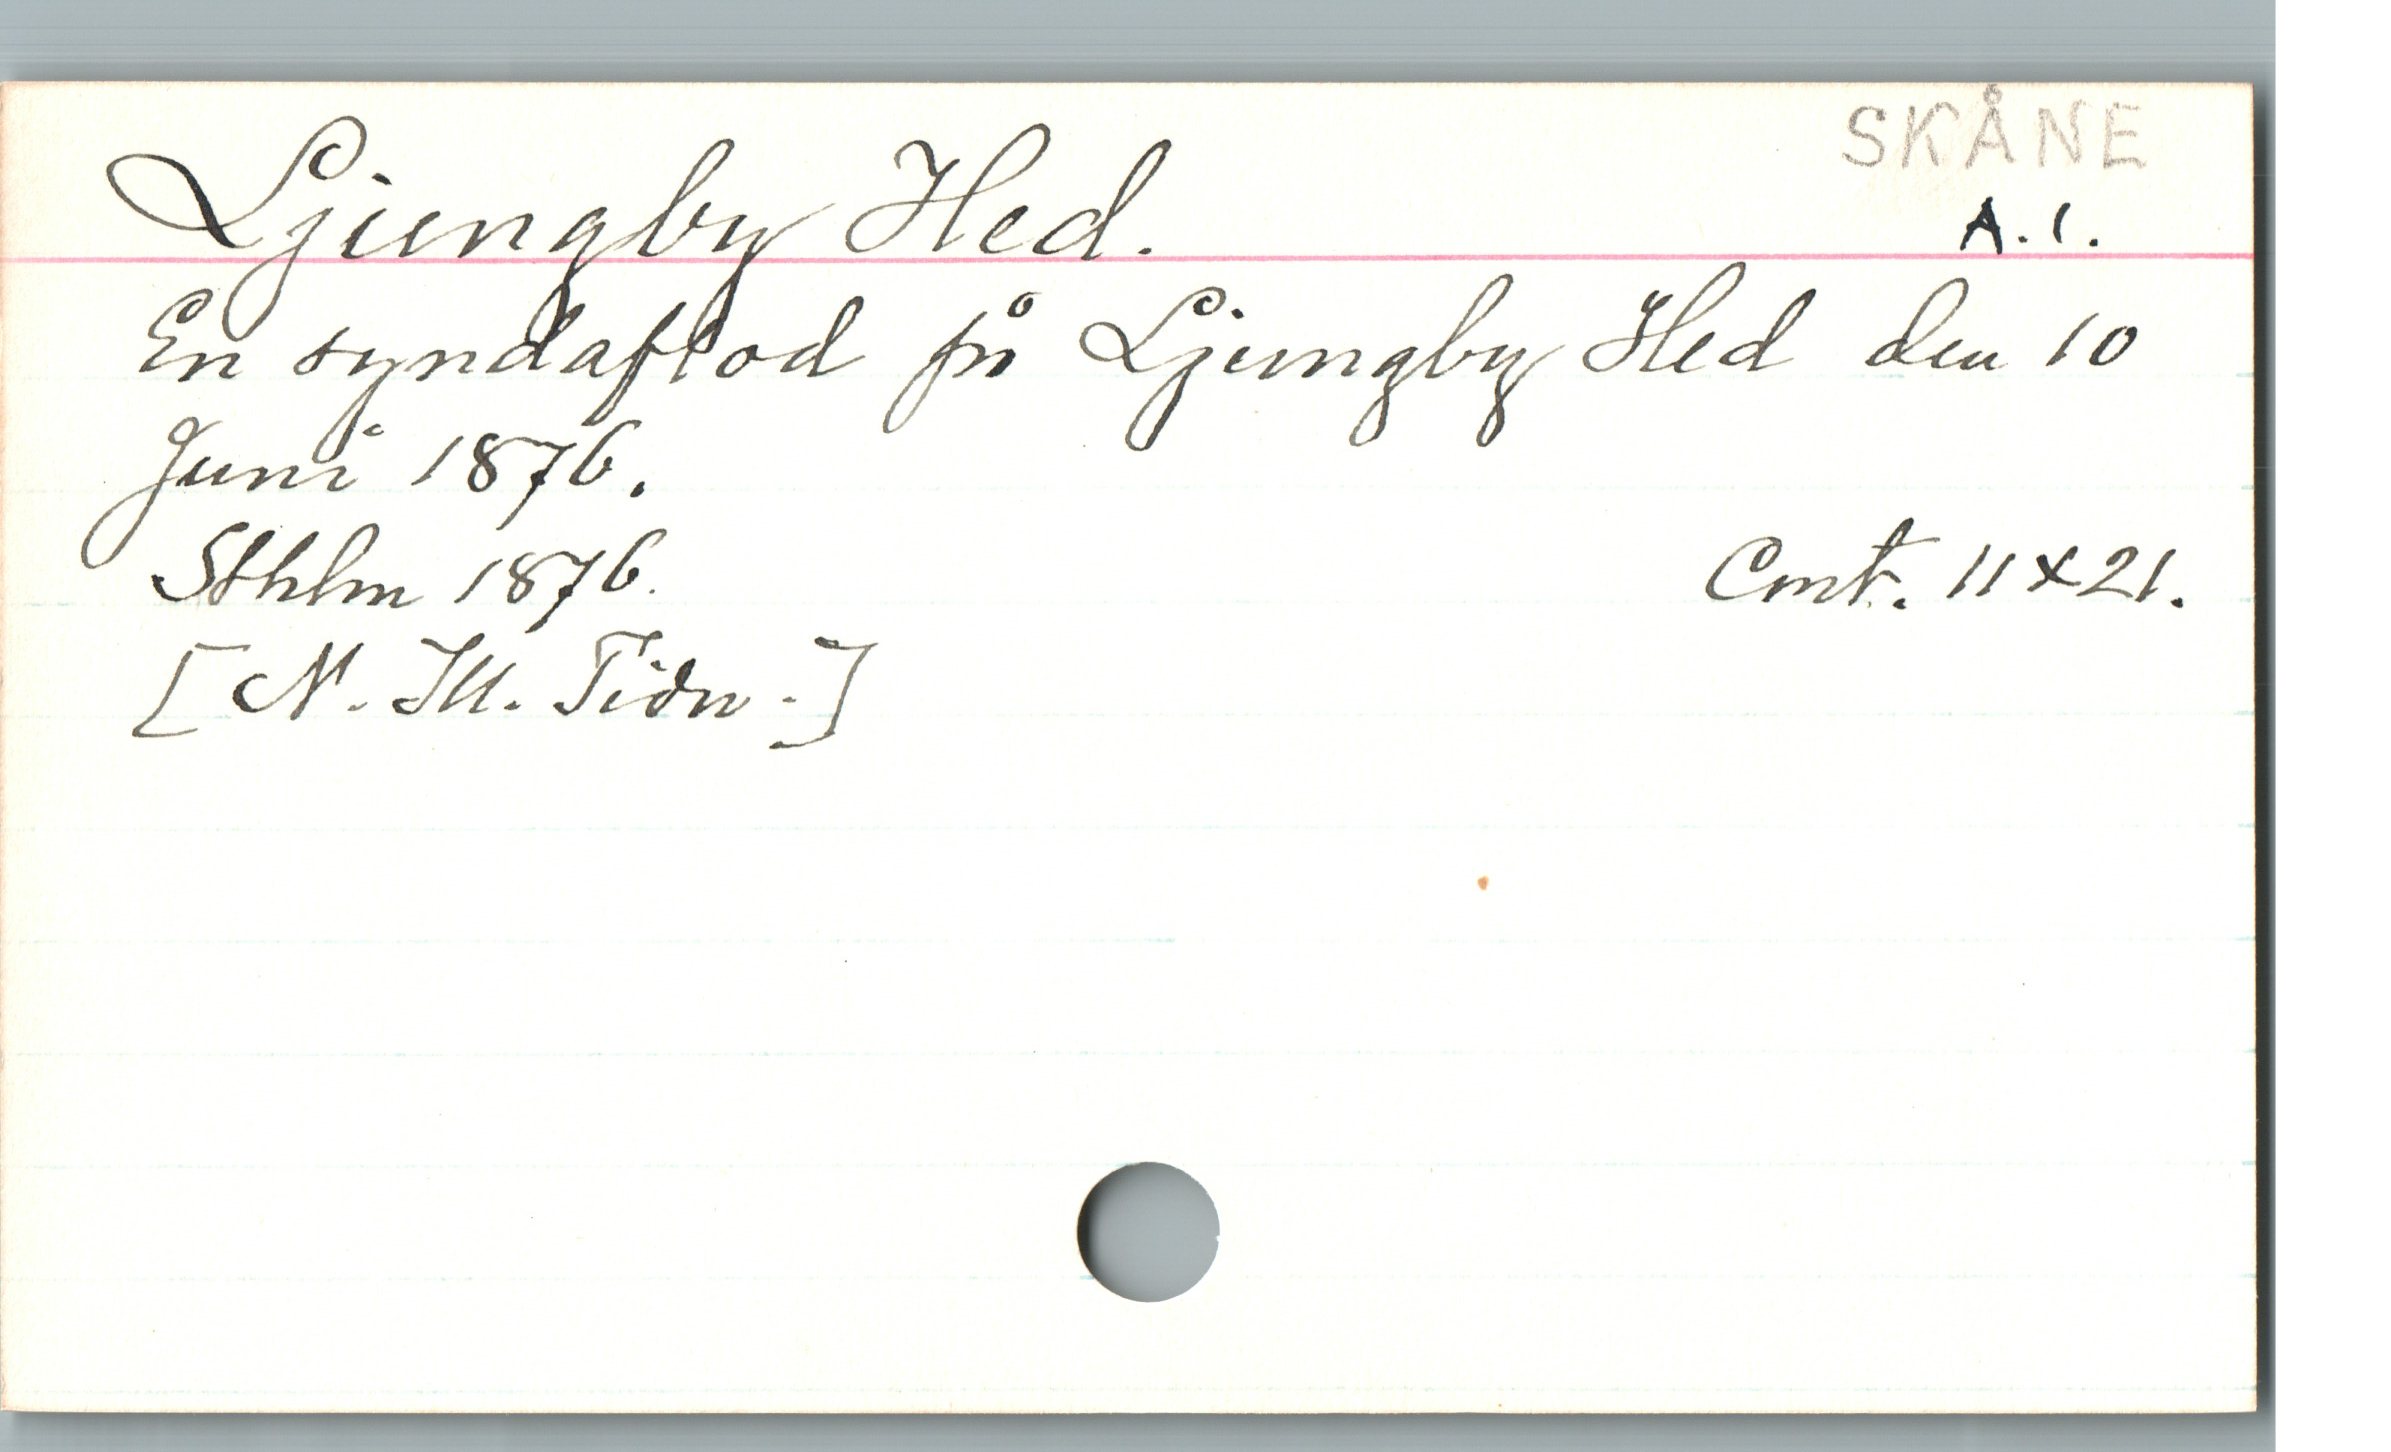 SKÅNE
Ljungby Hed.
A. 1.
En syndaflod på Ljungby Hed den 10
Juni 1876.
Sthlm 1876. Cmt. 11 x 21.
[N. Ill. Tidn.]